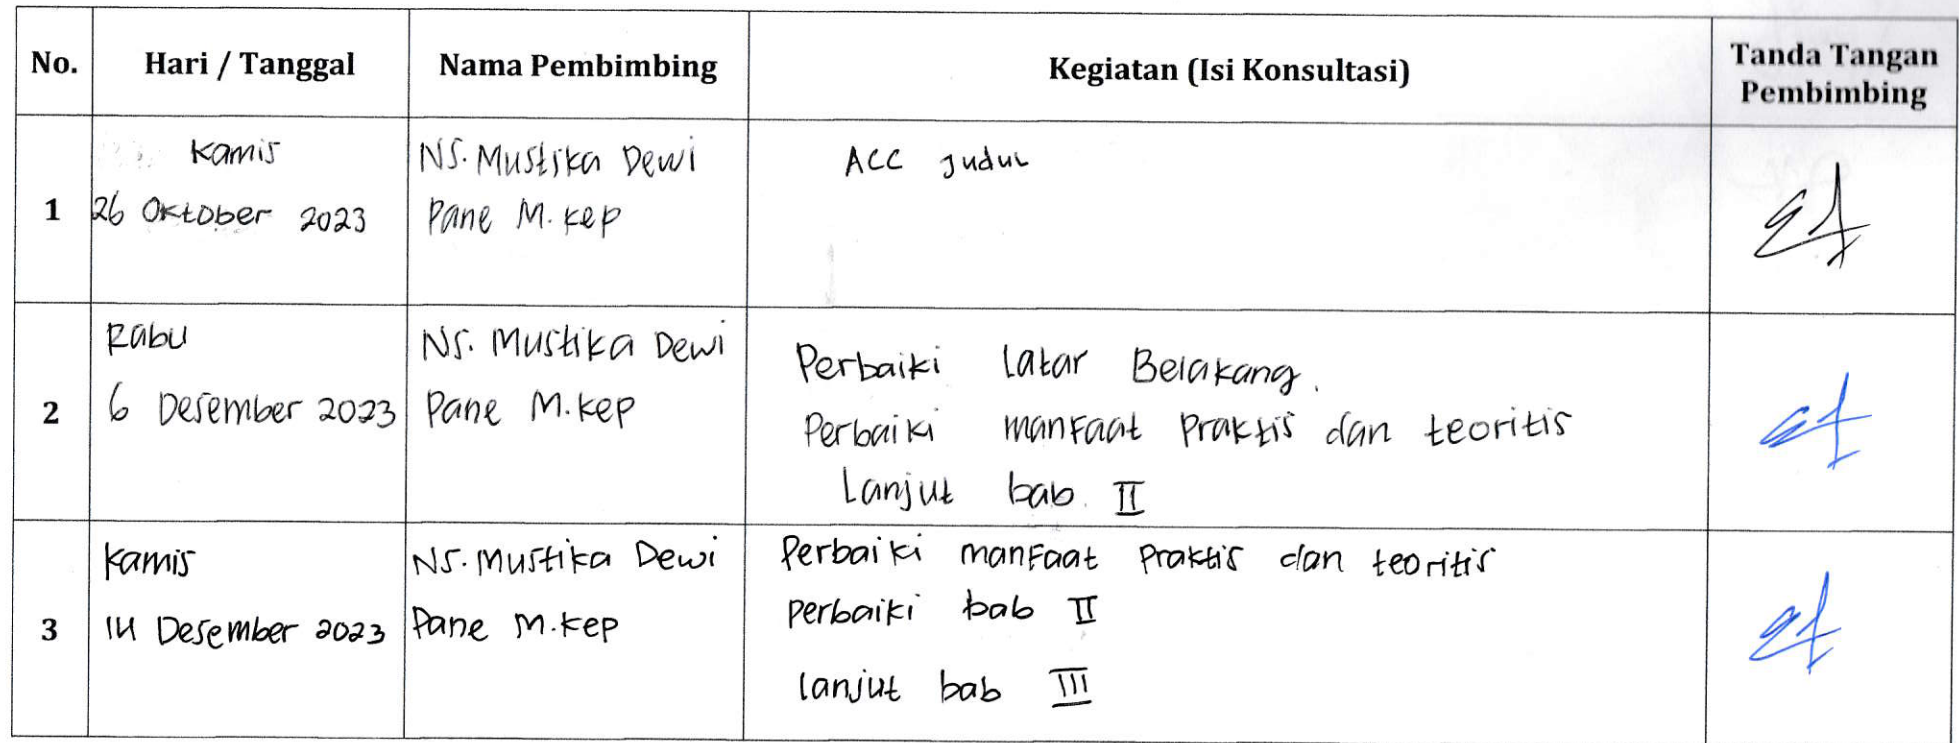 No. Hari / Tanggal Nama Pembimbing Kegiatan (Isi Konsultasi) Tanda Tangan
Pembimbing
1
Kamis
26 Oktober 2023
NS. Mustika Dewi
Pane M. Kep
ACC Judul
2
Rabu
6 Desember 2023
NS. Mustika Dewi
Pane M. Kep
Perbaiki Latar Belakang.
Perbaiki manfaat Praktis dan teoritis
Lanjut bab II
3
Kamis
14 Desember 2023
NS. Mustika Dewi
Pane M. Kep
Perbaiki manfaat Praktis dan teoritis
perbaiki bab II
lanjut bab III